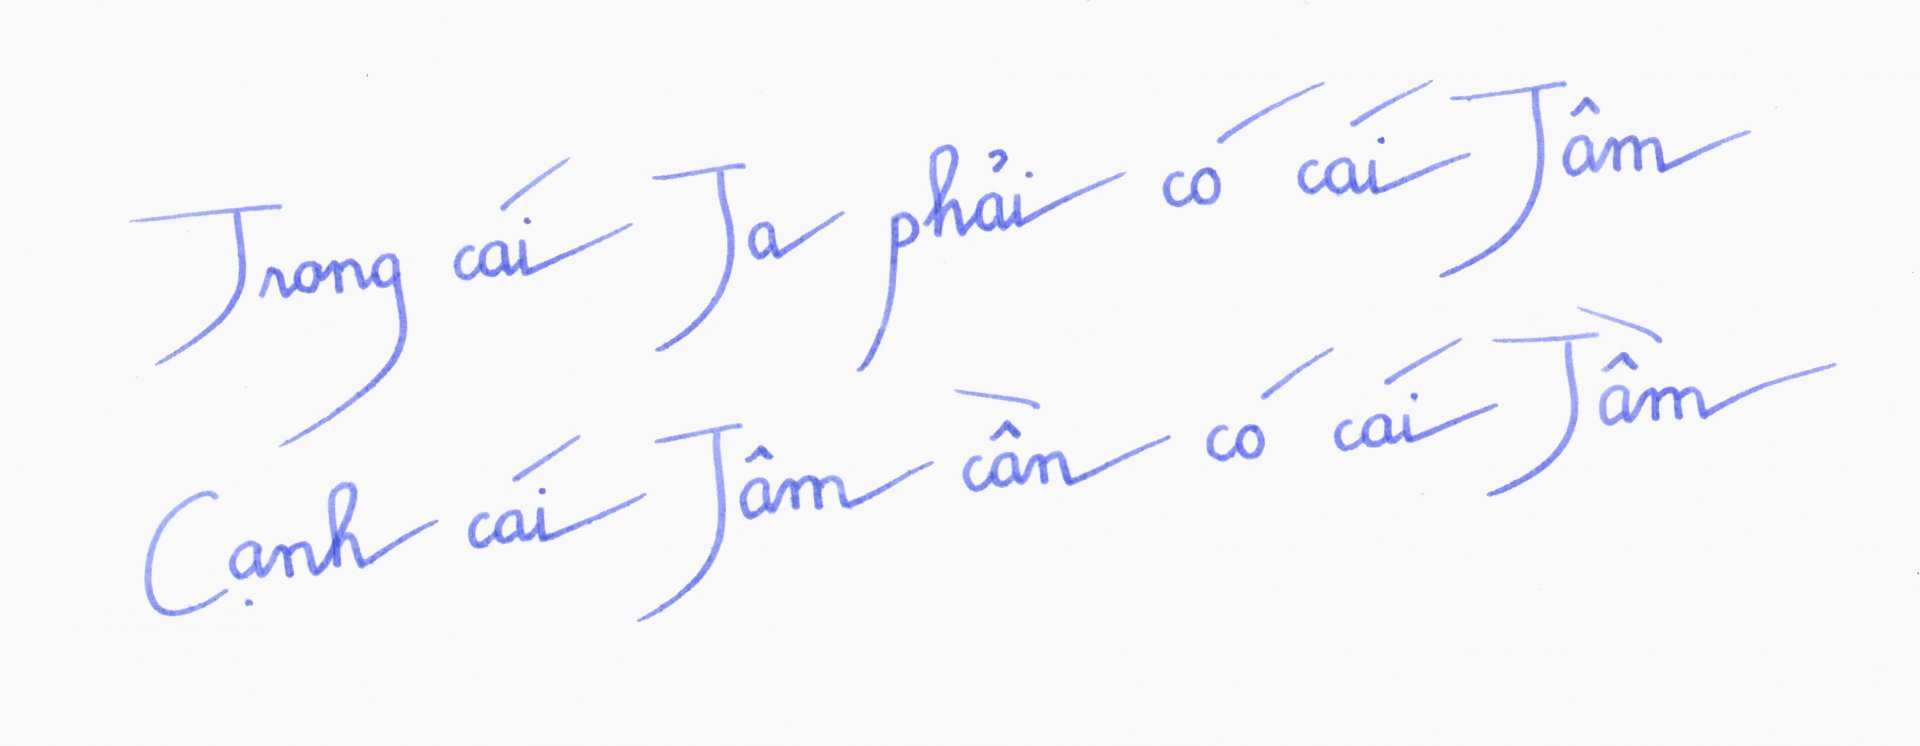 Trong cái Ta phải có cái Tâm
Cạnh cái Tâm cần có cái Tầm